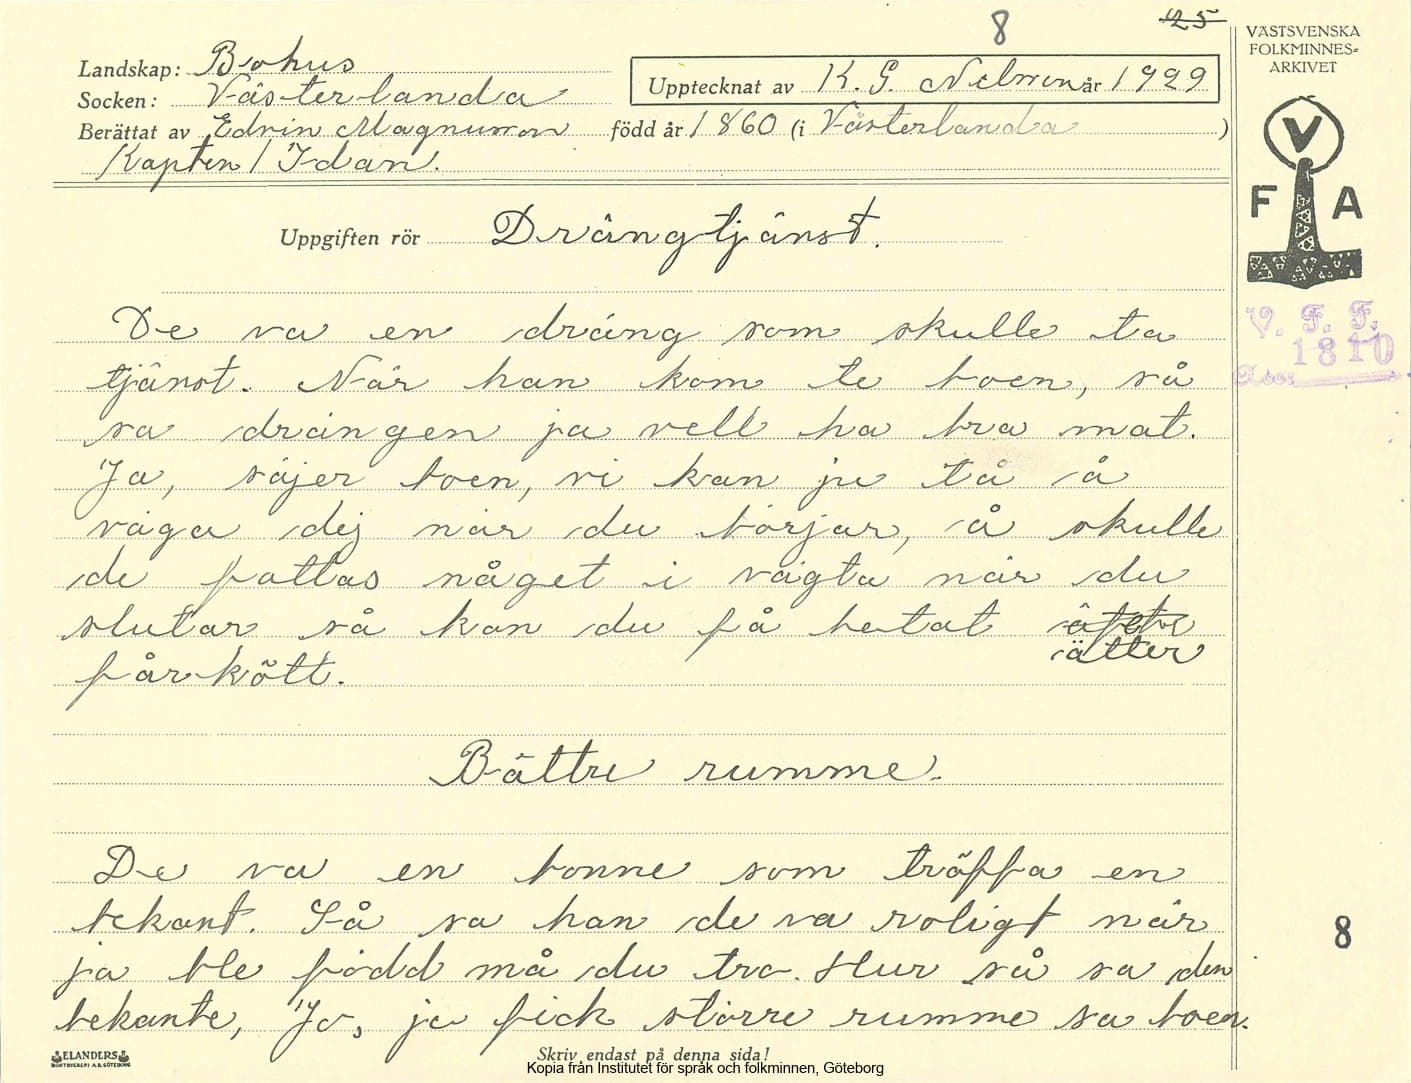 8 25
VÄSTSVENSKA
FOLKMINNES-
ARKIVET
Landskap: Bohus
Socken: Västerlanda
Upptecknat av K. G. Nelson år 1929
Berättat av Edvin Magnusson född år 1860 (i Västerlanda )
Kapten / Idan.
V
F A
Uppgiften rör Drängtjänst.
V. F. F.
1810
De va en dräng som skulle ta
tjänst. När han kom te boen, så
sa drängen ja vell ha bra mat.
Ja, säjer boen, vi kan ju ta å
väga dej när du börjar, å skulle
de fattas någet i vägta när du
slutar så kan du få betat
ätter
fårkött.
Bättre rumme.
De va en bonne som träffa en
bekant. Så sa han de va roligt när
ja ble född må du tro. Hur så sa den
bekante, Jo, ja fick större rumme sa boen.
8
ELANDERS
BOKTRYCKERI A.B. GÖTEBORG
Skriv endast på denna sida!
Kopia från Institutet för språk och folkminnen, Göteborg